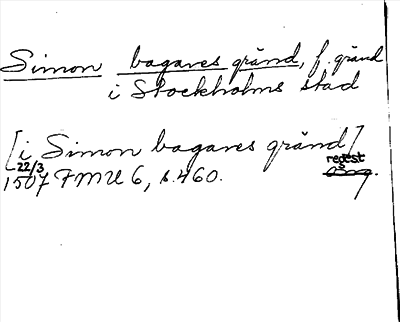 Simon bagares gränd, f. gränd
i Stockholms stad
[i Simon bagares gränd]
22/3 regest
1507 FMU 6, s. 460.